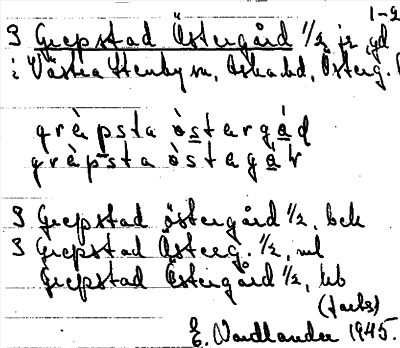 1-2
S Grepstad Östergård 1/2, je, gd
i Västra Stenby sn, Aska hd, Österg. l
grèpsta òstərgåd
grèpsta òstəgår
S Grepstad östergård 1/2, bek
S Grepstad Österg. 1/2, ml
Grepstad Östergård 1/2, kb
(forts)
E. Nordlander 1945.